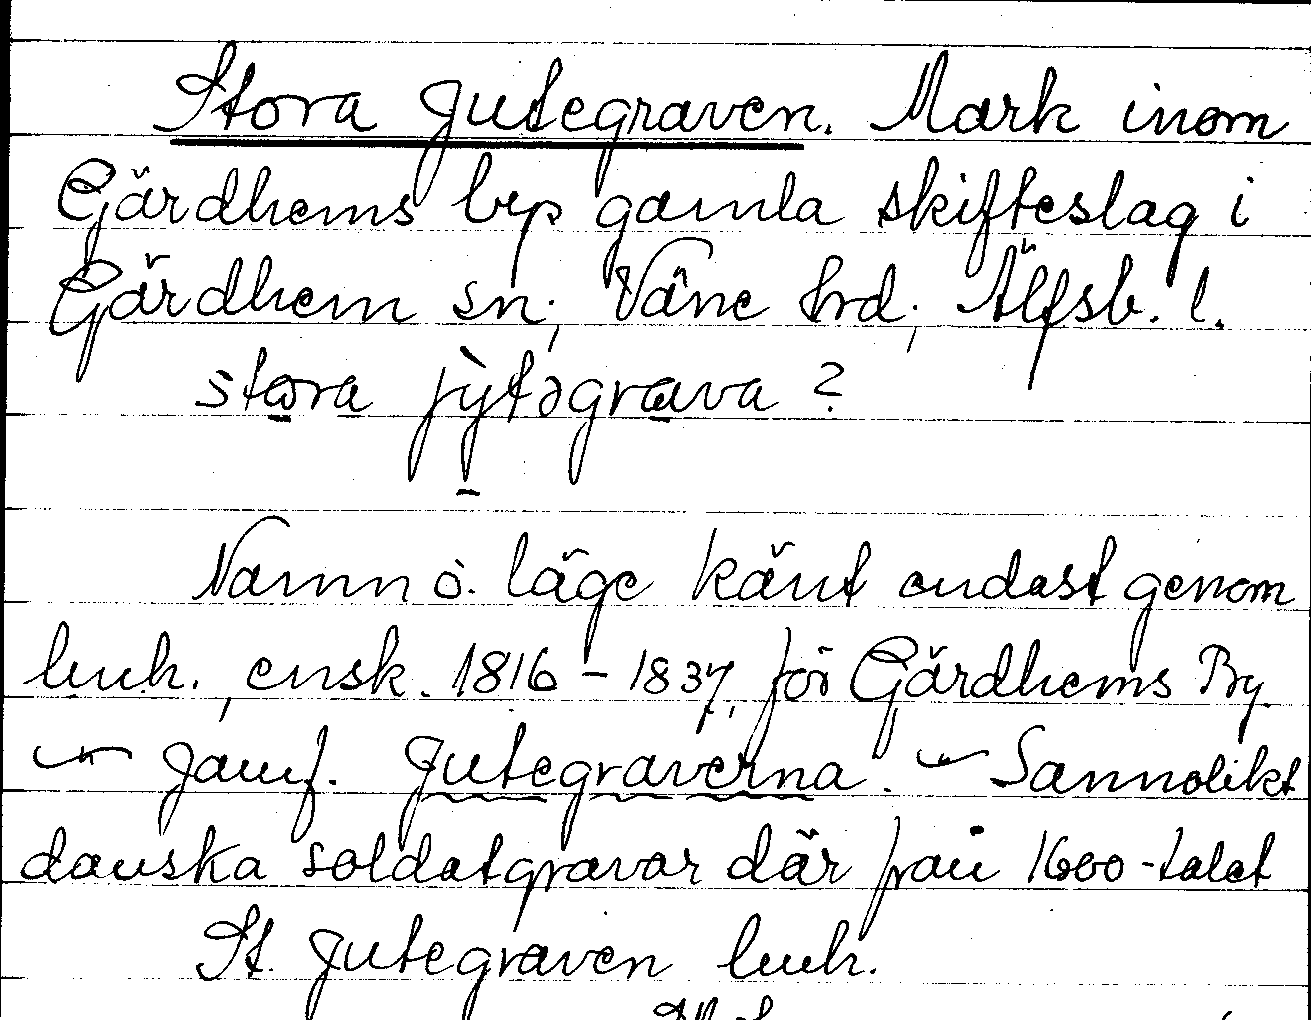 Stora Jutegraven. Mark inom
Gärdhems bys gamla skifteslag i
Gärdhem sn; Väne hrd; Älfsb. l.
stora jỳtəgrava ?
Namn o. läge känt endast genom
lmh., ensk. 1816 – 1837, för Gärdhems By.
— Jämf. Jutegraverna. — Sannolikt
danska soldatgravar där från 1600-talet
St. Jutegraven lmh.